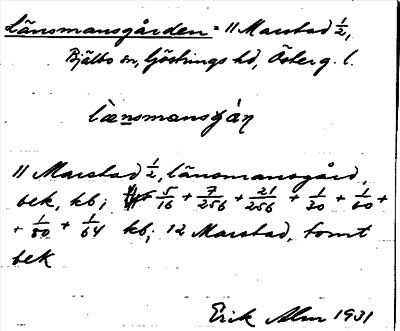 Länsmansgården = 11 Marstad ½,
Bjälbo sn, Göstrings hd, Österg. l.
11 Marstad ½, länsmansgård,
bek, kb; 5/16 + 7/256 + 21/256 + 1/20 + 1/60 +
+ 1/80 + 1/64 kb; 12 Marstad, tomt
bek
Erik Alm 1931